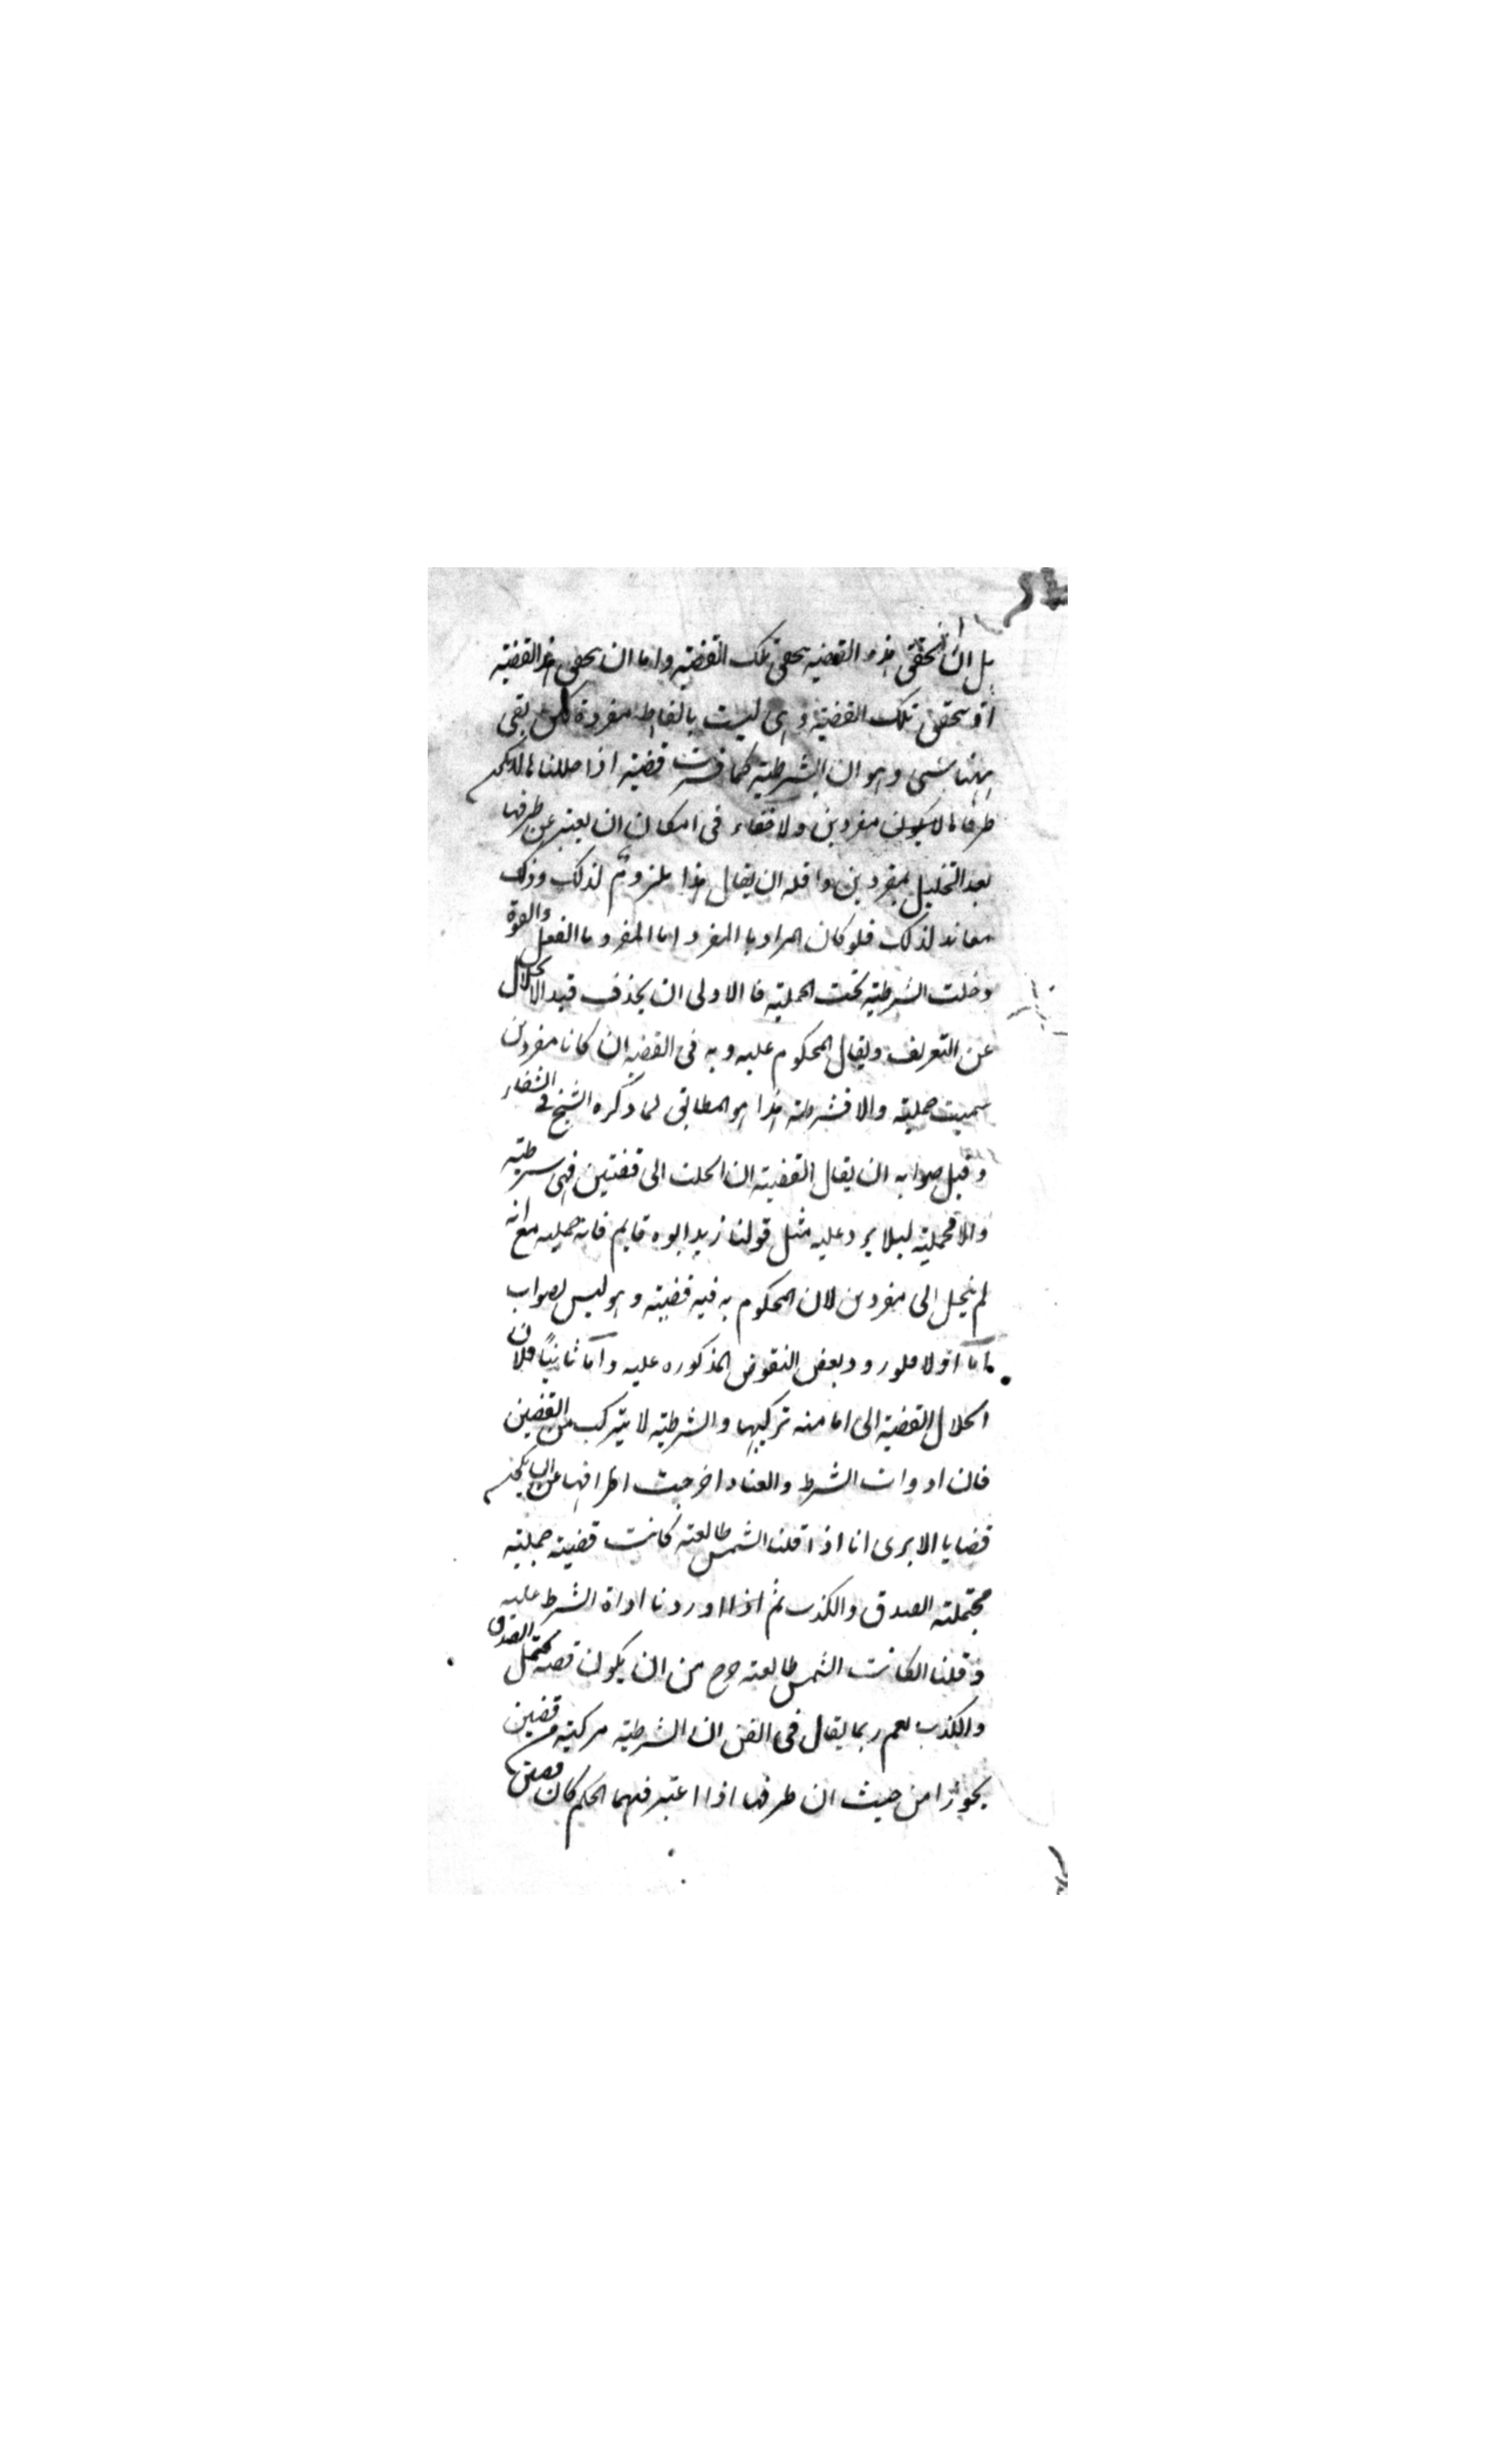 بل ان تحقق هذه القضيه تحقق تلك القضيه واما ان تحقق هذه القضيه
او تحقق تلك القضية وهى ليست بالفاظ مفردة لكن بقى
ههنا شىء وهو ان الشرطيه كما فسرت قضيه اذا حللناها
طرفاها لا يكونان مفردين ولا خفاء فى امكان ان يعبر عن طرفيها
بعد التحليل بمفردين واقله ان يقال هذا ملزوم لذلك وذلك
معاند لذلك فلو كان المراد بالمفرد اما المفرد بالفعل والقوة
دخلت الشرطيه تحت الحمليه فالاولى ان يحذف قيد الانحلال
عن التعريف ويقال المحكوم عليه وبه فى القضيه ان كانا مفردين
سميت حمليه والا فشرطيه هذا هو المطابق لما ذكره الشيخ فى الشفاء
وقيل صوابه ان يقال القضيه ان انحلت الى قضيتين فهى شرطيه
والا فحمليه ليلا يرد عليه مثل قولنا زيد ابوه قايم فانه حمليه مع انه
لم ينحل الى مفردين لان المحكوم به فيه قضيه وهو ليس بصواب
اما اولا فلورود بعض النقوض المذكوره عليه واما ثانيا فلان
انحلال القضية الى ما منه تركيبها والشرطيه لا يتركب من القضيتين
فان ادوات الشرط والعناد اخرجت اطرافها عن ان يكون
قضايا الا يرى انا اذا قلنا الشمس طالعه كانت قضيه حمليه
محتمله الصدق والكذب ثم اذا اوردنا اداة الشرط عليه
وقلنا ان كانت الشمس طالعه خرج من ان يكون قضيه محتمل الصدق
والكذب نعم ربما يقال فى الفن ان الشرطيه مركبه من قضيتين
تجوزا من حيث ان طرفيها اذا اعتبر فيهما الحكم كان قضيتين